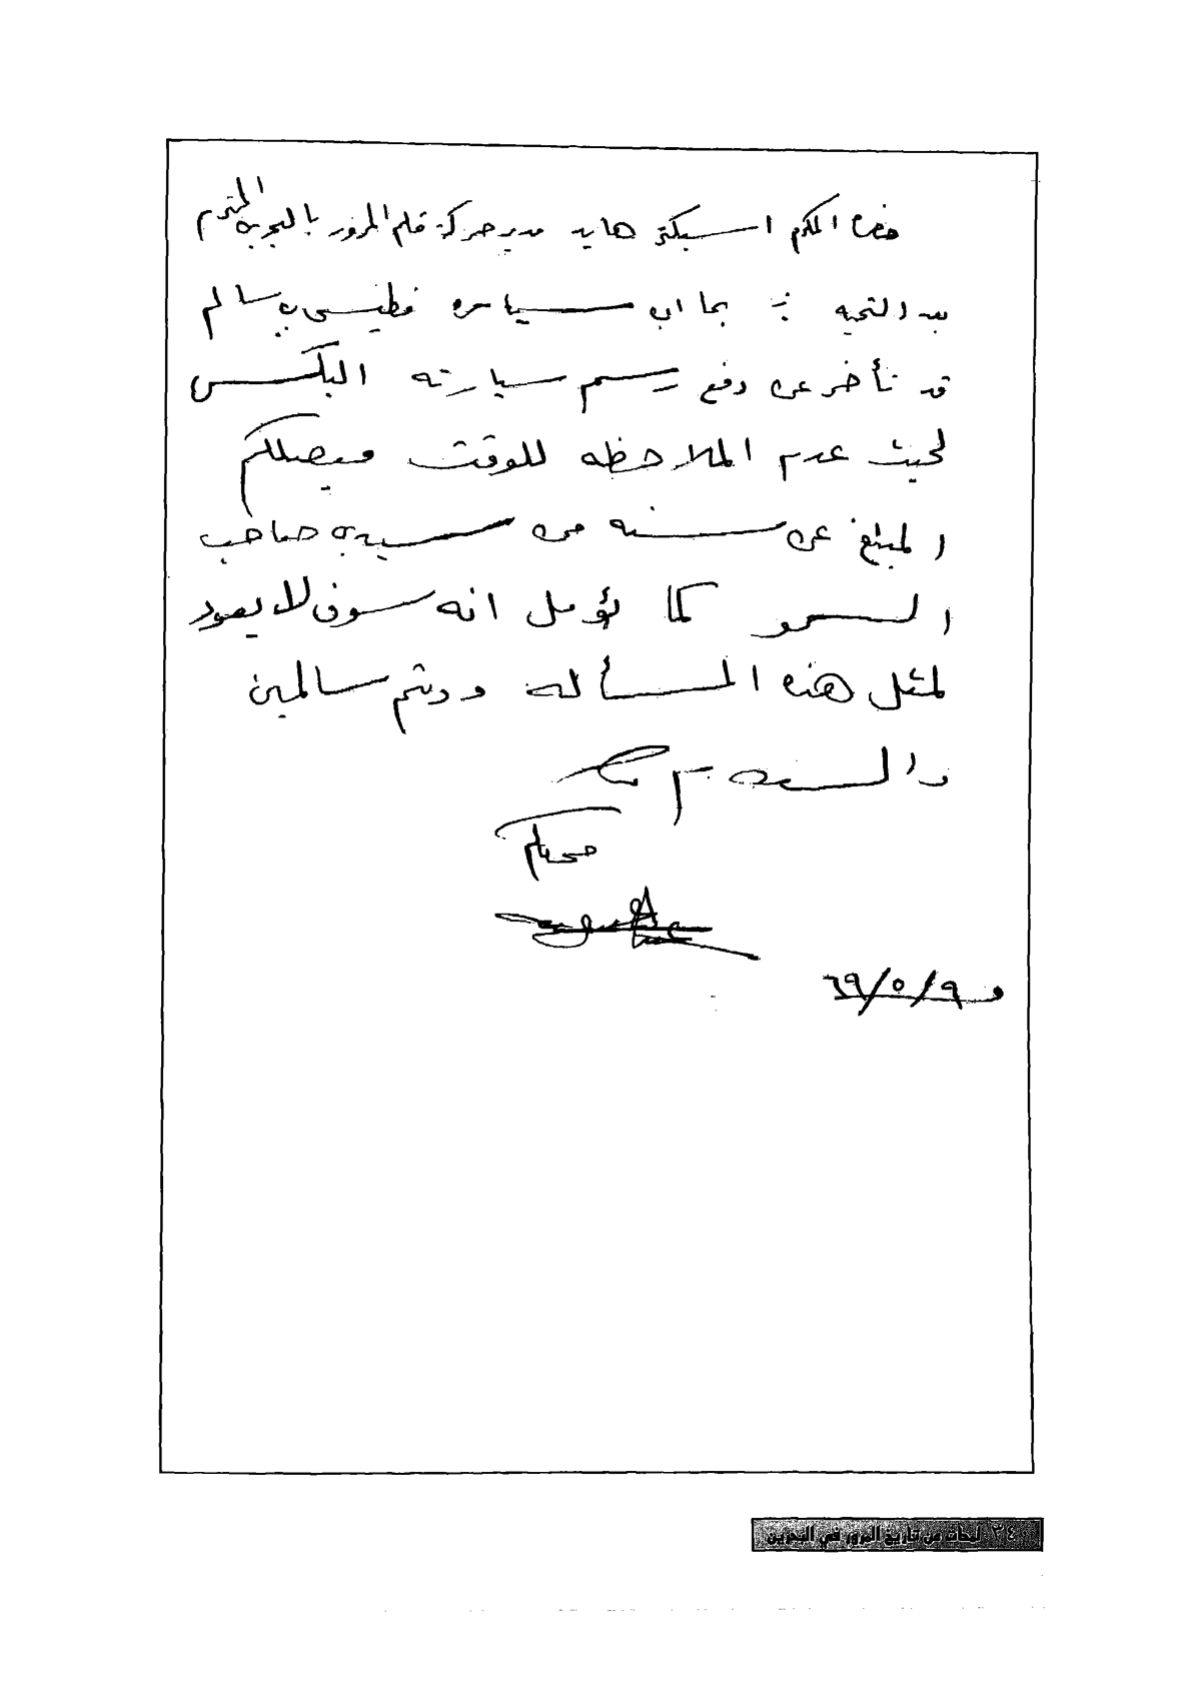 حضرة المكرم اسبكتر هايد مدير حركة قلم المرور بالبحرين المحترم
بعد التحية :: بما ان سيا مرة فطيس بن سالم
قد تأخر عن دفع رسم سيارته البكس
لحيث عدم الملاحظه للوقت فيصلكم
المبلغ عن سنه من سيدي صاحب
السمو كما نؤمل انه سوف لا يعود
لمثل هذه المسألة ودمتم سالمين
والسلام
محبكم
في ٩/٥/٦٩
٣٤٠ لمحات من تاريخ المرور في البحرين